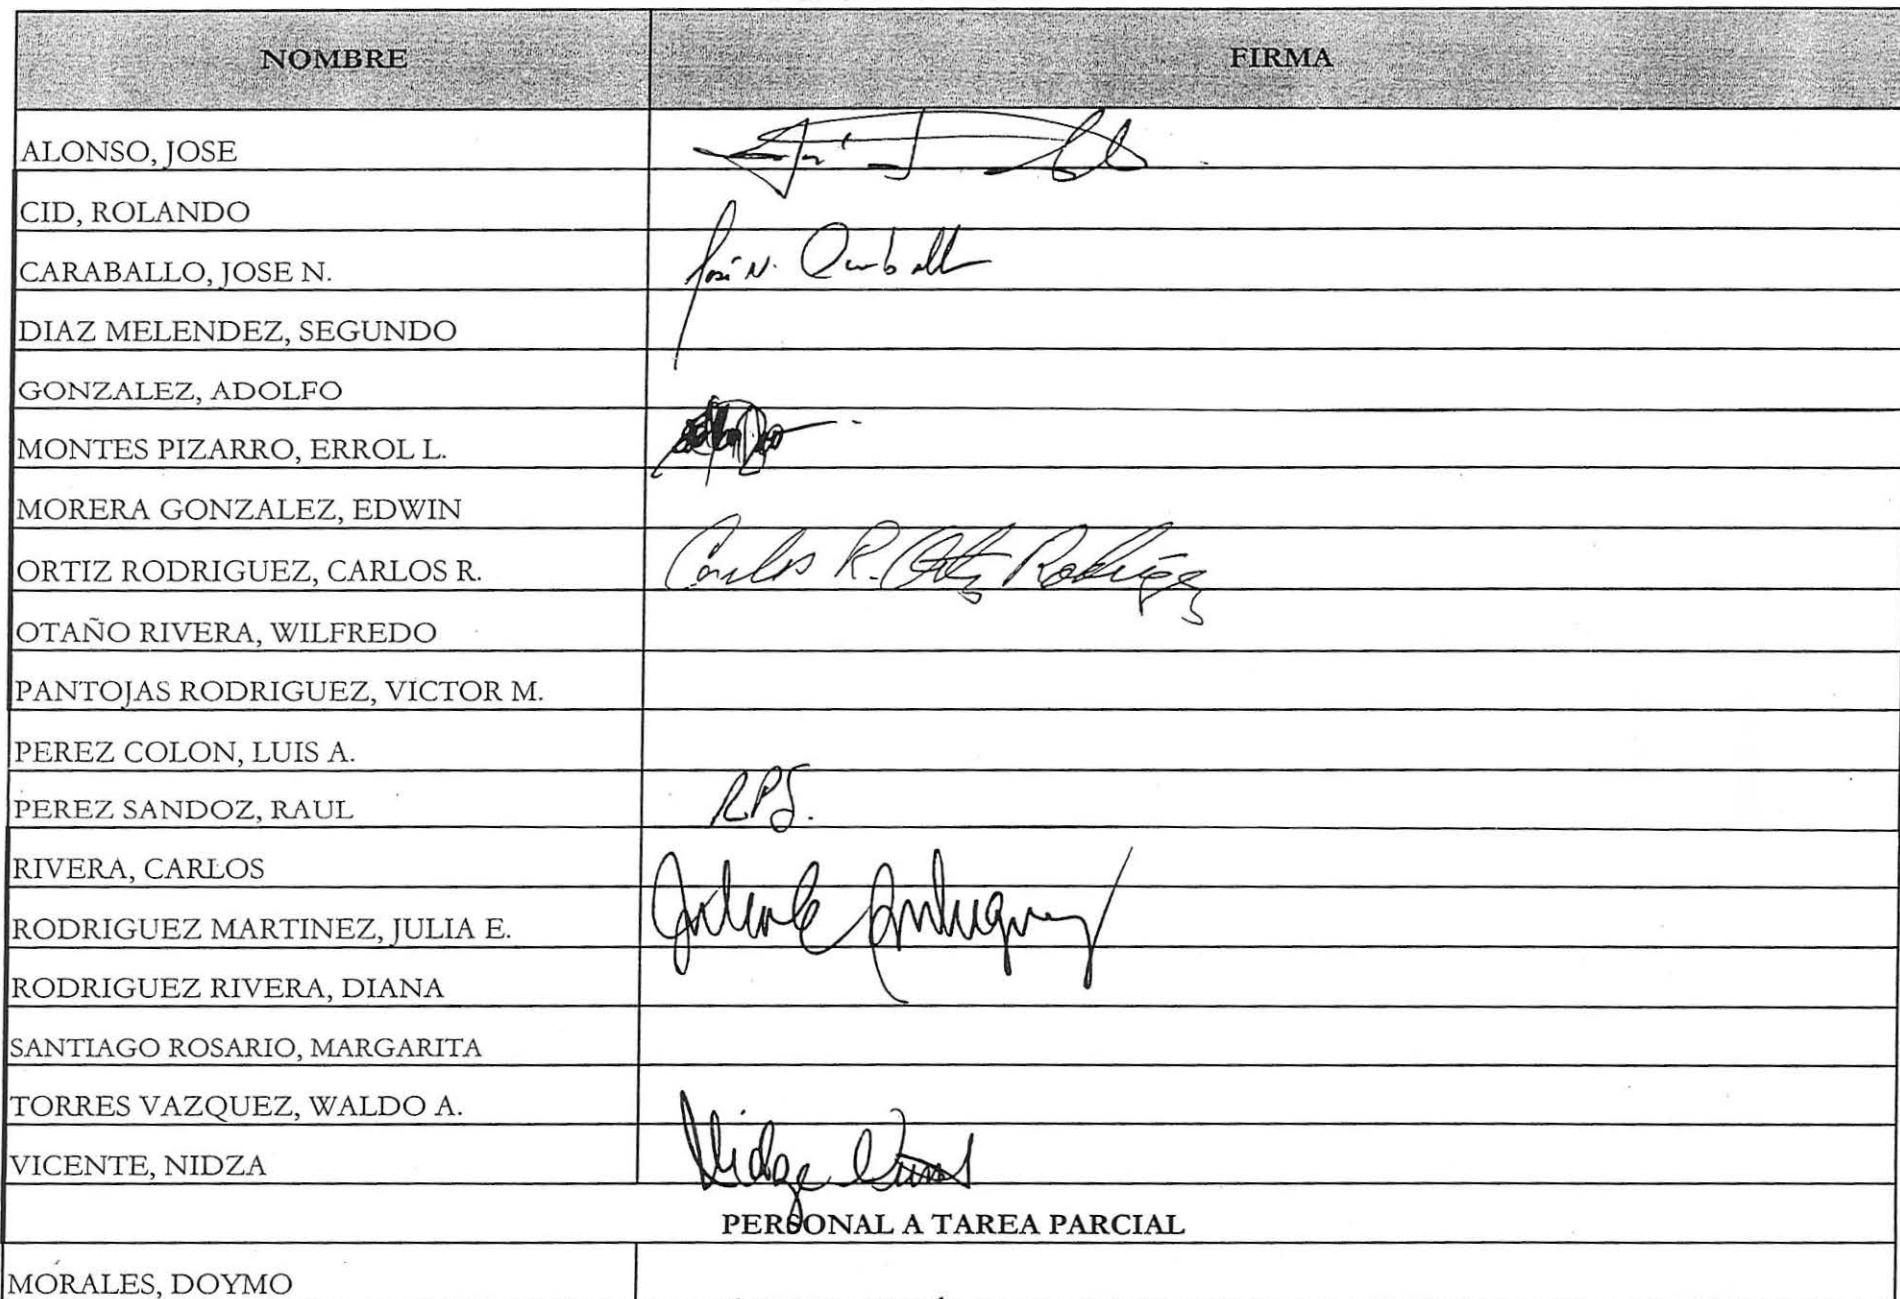 NOMBRE FIRMA
ALONSO, JOSE
CID, ROLANDO
CARABALLO, JOSE N. José N. Caraballo
DIAZ MELENDEZ, SEGUNDO
GONZALEZ, ADOLFO
MONTES PIZARRO, ERROL L.
MORERA GONZALEZ, EDWIN
ORTIZ RODRIGUEZ, CARLOS R. Carlos R. Ortiz Rodríguez
OTAÑO RIVERA, WILFREDO
PANTOJAS RODRIGUEZ, VICTOR M.
PEREZ COLON, LUIS A.
PEREZ SANDOZ, RAUL RPS.
RIVERA, CARLOS
RODRIGUEZ MARTINEZ, JULIA E. Julia E Rodriguez
RODRIGUEZ RIVERA, DIANA
SANTIAGO ROSARIO, MARGARITA
TORRES VAZQUEZ, WALDO A.
VICENTE, NIDZA Nidza Vicente
PERSONAL A TAREA PARCIAL
MORALES, DOYMO